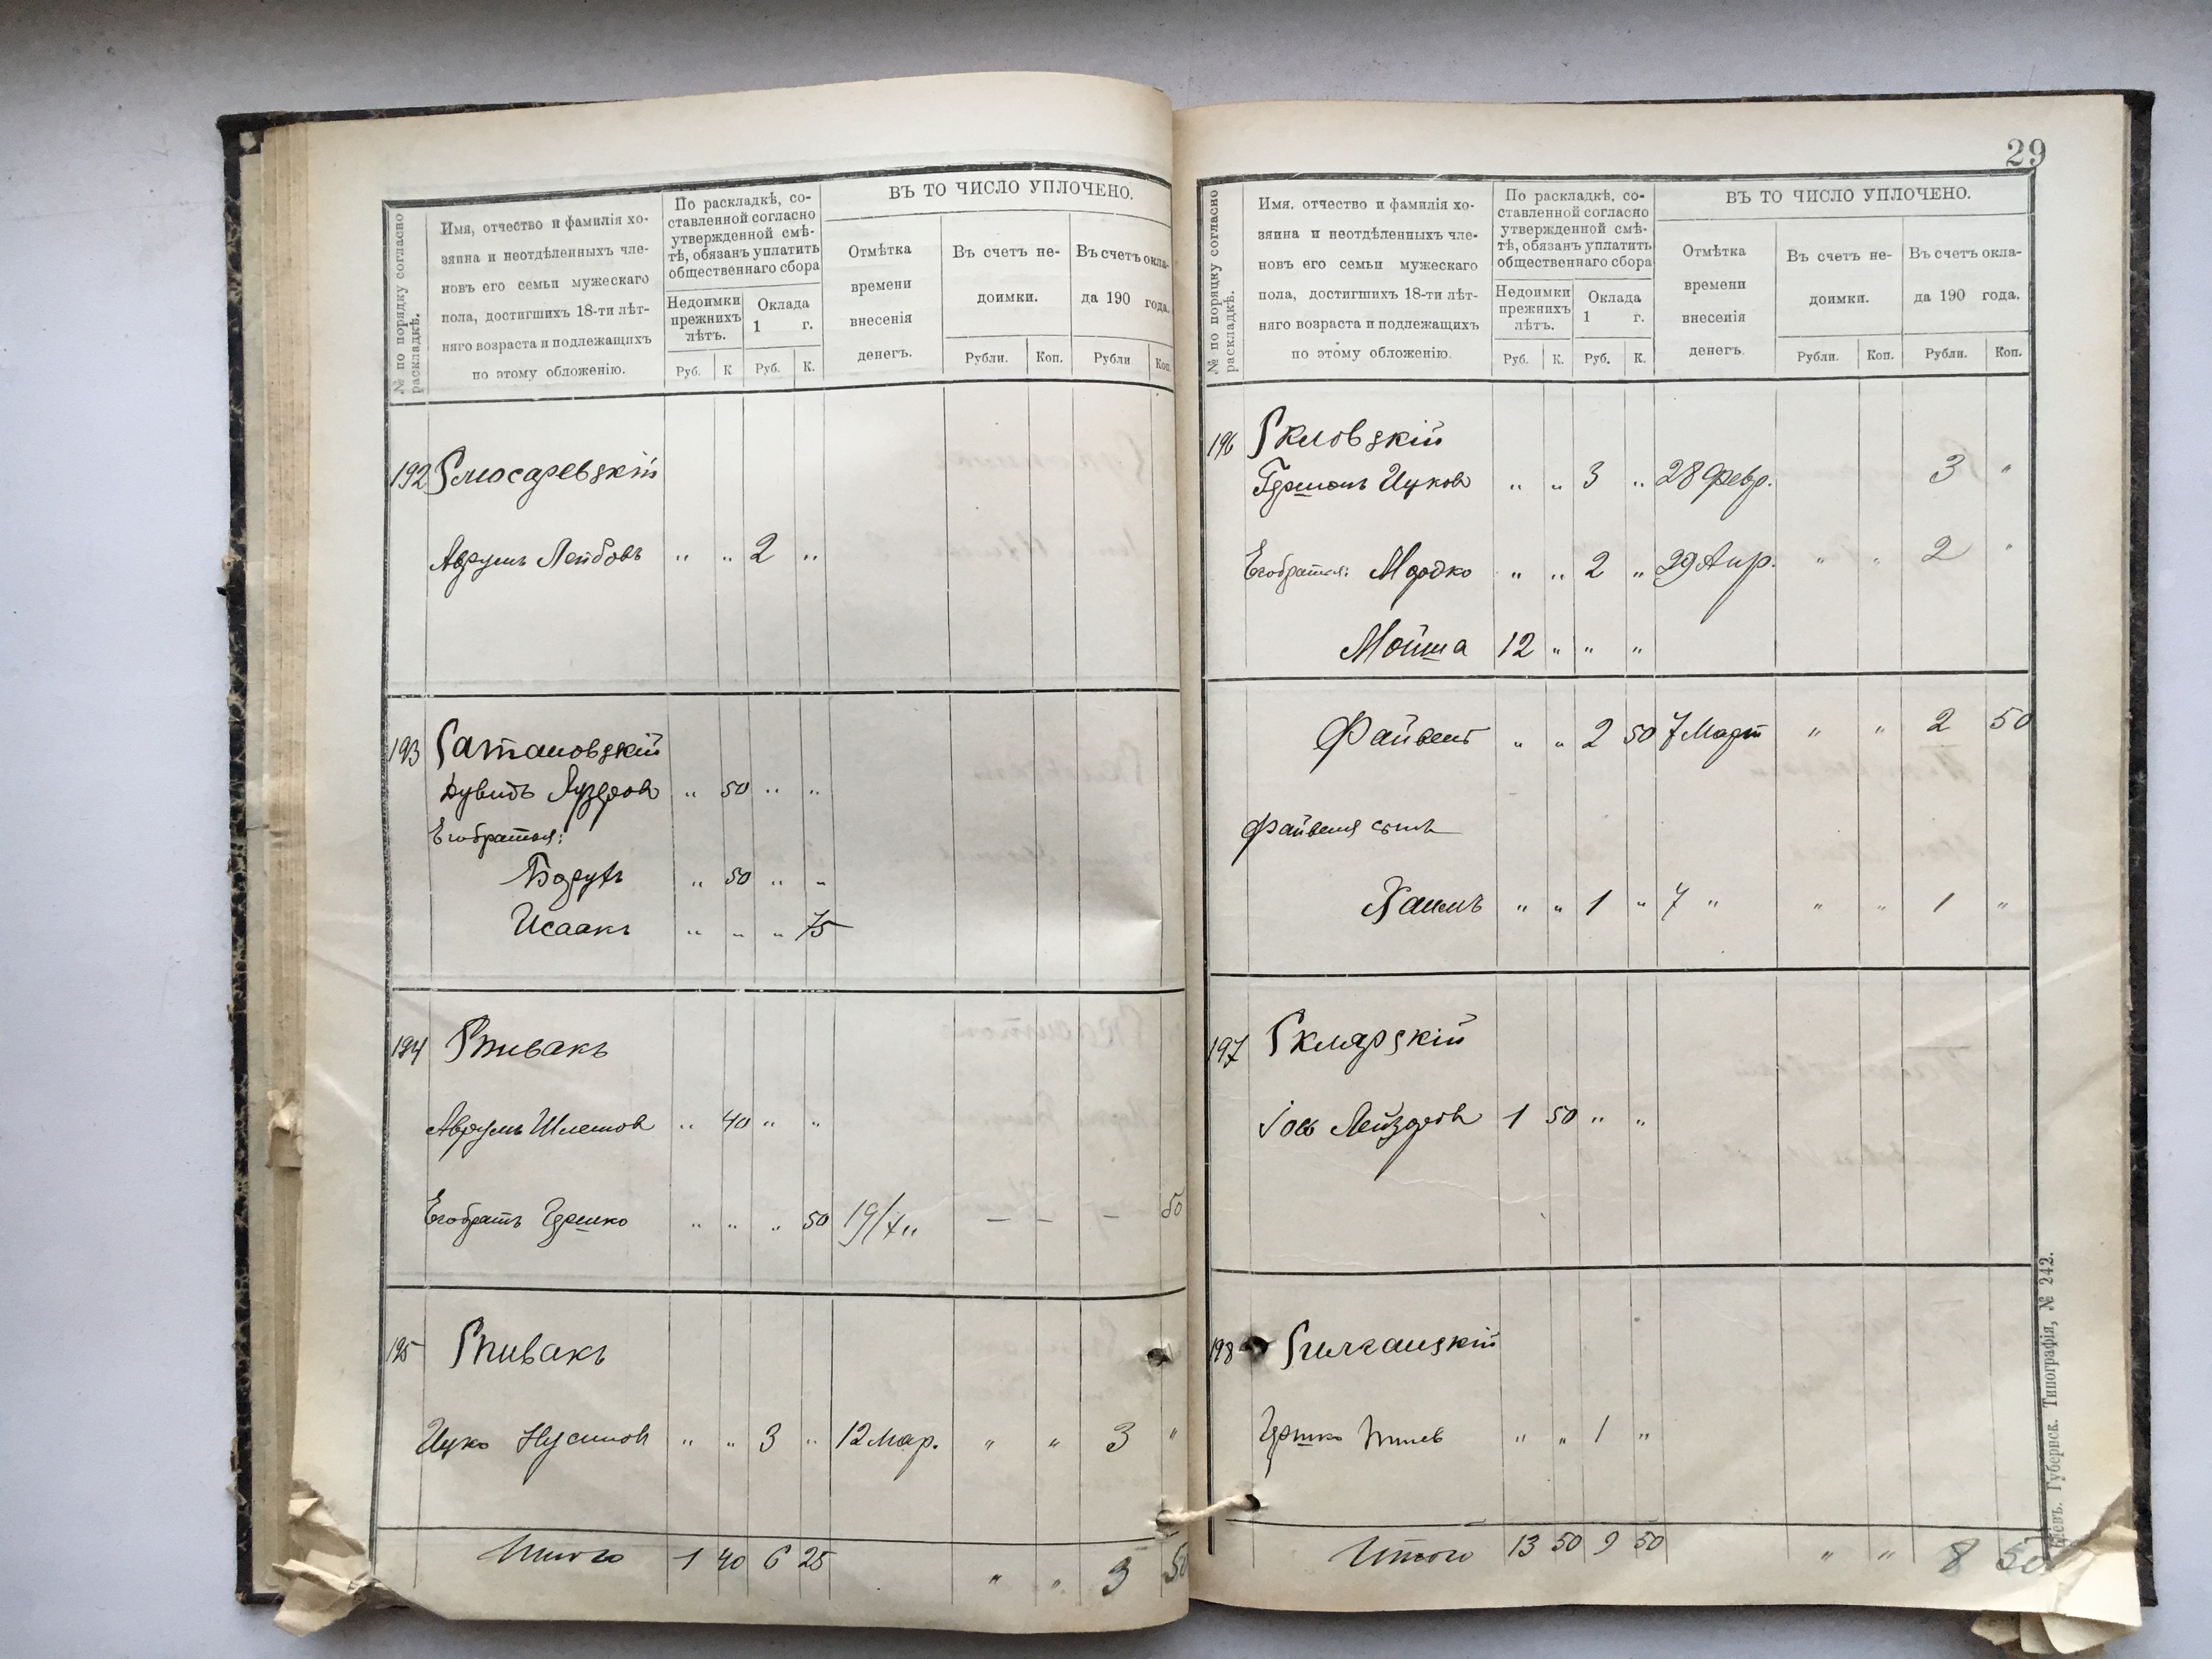 № по порядку согласно раскладкѣ.
Имя, отчество и фамилія хо-
зяина и неотдѣленныхъ чле-
новъ его семьи мужескаго
пола, достигшихъ 18-ти лѣт-
няго возраста и подлежащихъ
по этому обложенію.
По раскладкѣ, со-
ставленной согласно
утвержденной смѣ-
тѣ, обязанъ уплатить
общественнаго сбора
Недоимки
прежнихъ
лѣтъ.
Оклада
1 г.
Руб. К. Руб. К.
ВЪ ТО ЧИСЛО УПЛОЧЕНО.
Отмѣтка
времени
внесенія
денегъ.
Въ счетъ не-
доимки.
Въ счетъ окла-
да 190 года.
Рубли. Коп. Рубли Коп.
192 Слюсаревскій
Аврумъ Лейбовъ " " 2 "
193 Сатановскій
Дувидъ Лузеровъ " 50 " "
Его братья:
Борухъ " 50 " "
Исаакъ " " " 75
194 Спивакъ
Аврумъ Шлемов " 40 " "
Его братъ Гершко " " " 50 19/X " — — — 50
195 Спивакъ
Ицко Нусинов " " 3 " 12 Мар. " " 3 "
Итого 1 40 6 25 " " 3 50
29
№ по порядку согласно раскладкѣ.
Имя, отчество и фамилія хо-
зяина и неотдѣленныхъ чле-
новъ его семьи мужескаго
пола, достигшихъ 18-ти лѣт-
няго возраста и подлежащихъ
по этому обложенію.
По раскладкѣ, со-
ставленной согласно
утвержденной смѣ-
тѣ, обязанъ уплатить
общественнаго сбора
Недоимки
прежнихъ
лѣтъ.
Оклада
1 г.
Руб. К. Руб. К.
ВЪ ТО ЧИСЛО УПЛОЧЕНО.
Отмѣтка
времени
внесенія
денегъ.
Въ счетъ не-
доимки.
Въ счетъ окла-
да 190 года.
Рубли. Коп. Рубли. Коп.
196 Скловскій
Гершонъ Ицков " " 3 " 28 Февр. 3 "
Его братья: Мордко " " 2 " 29 Апр. " " 2 "
Мойша 12 " " "
Файвель " " 2 50 7 Март " " 2 50
Файвеля сынъ
Хаимъ " " 1 " 7 " " " 1 "
197 Склярскій
Лейзеров 1 50 " "
198
Гершко " " 1 "
Итого 13 50 9 50 " " 8 50
Кіевъ. Губернск. Типографія, № 242.